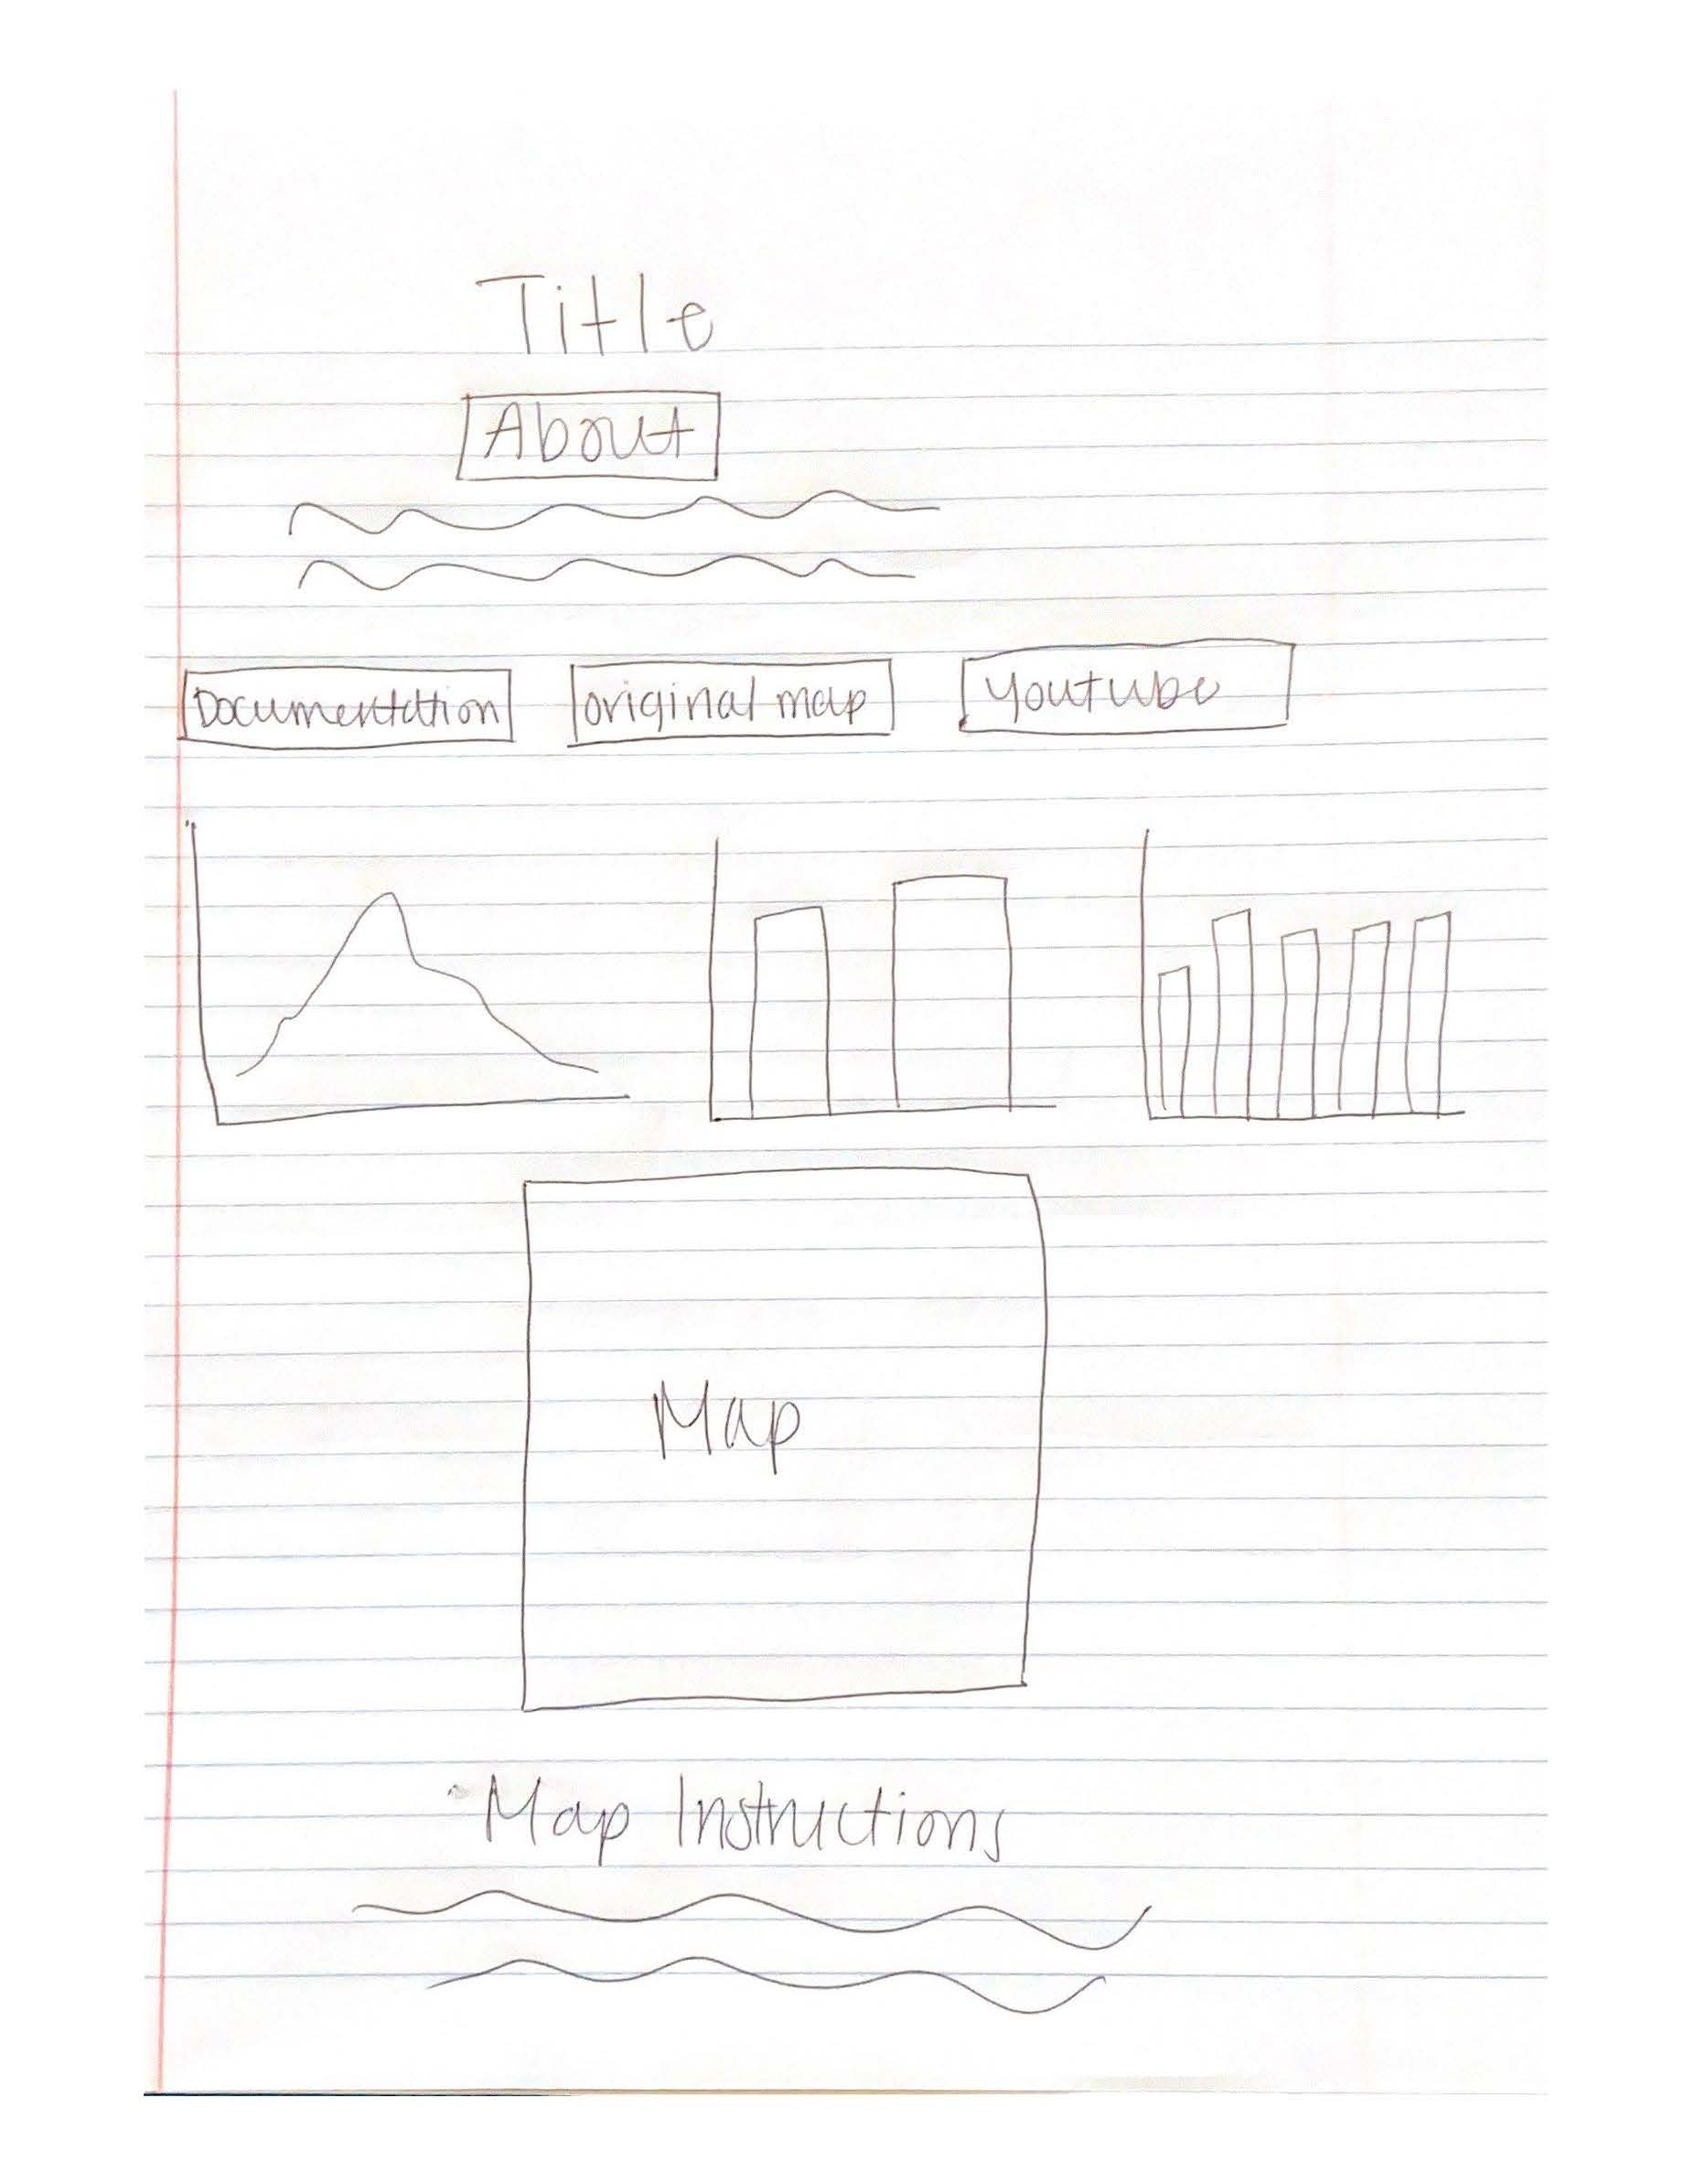 Title
About
Documentation original map Youtube
Map
Map Instructions